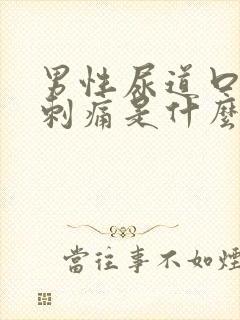 男性尿道口
刺痛是什麼
當往事不如煙